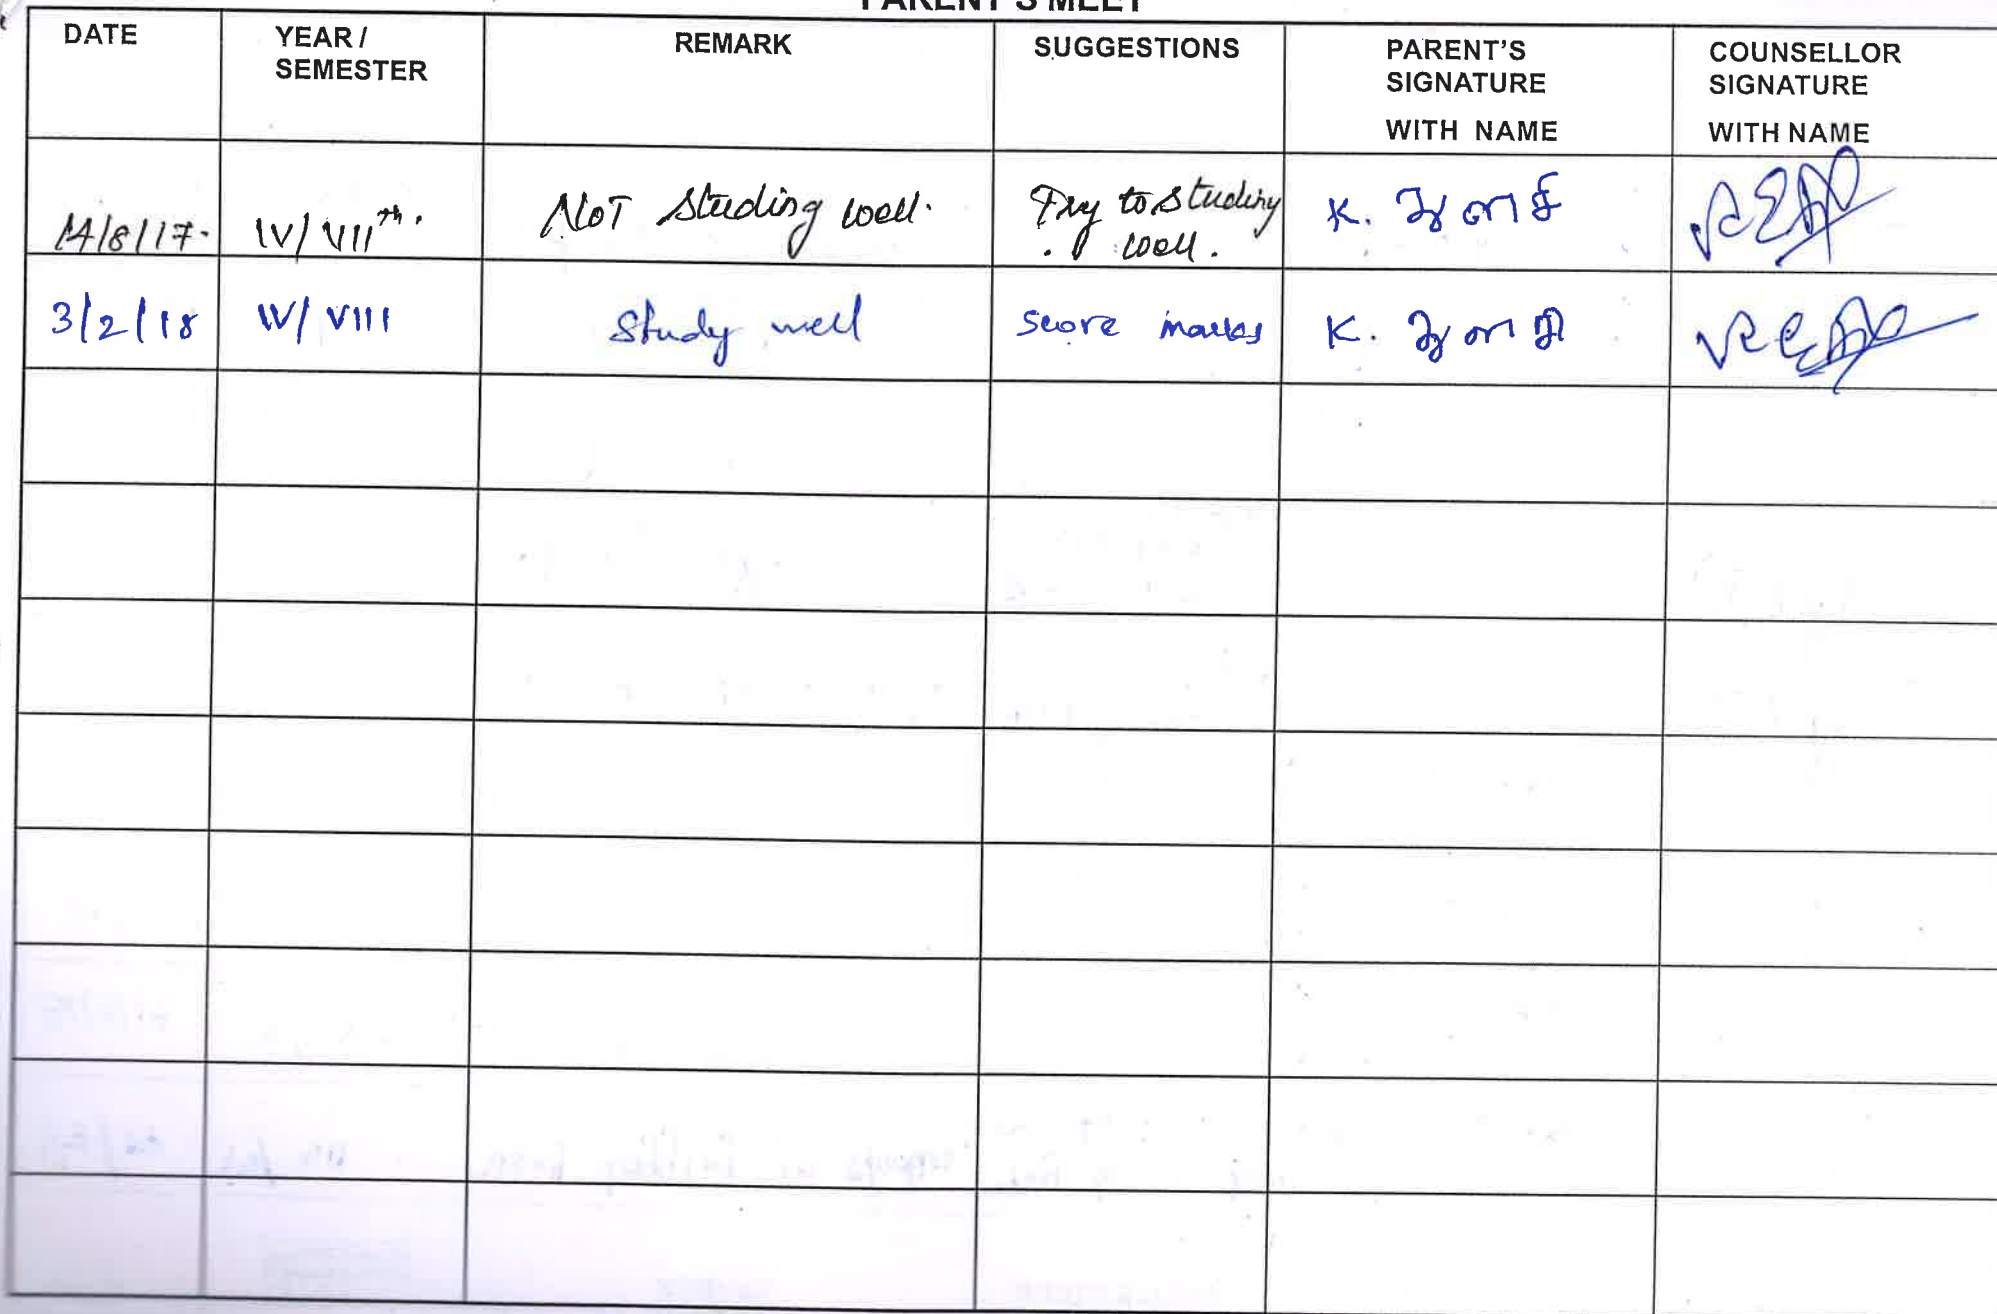 PARENT'S MEET
DATE YEAR / SEMESTER REMARK SUGGESTIONS PARENT'S SIGNATURE WITH NAME COUNSELLOR SIGNATURE WITH NAME
14/8/17. IV/VIIth. NOT Studing well. Try to studing well. K.
3/2/18 IV/VIII Study well score marks K.